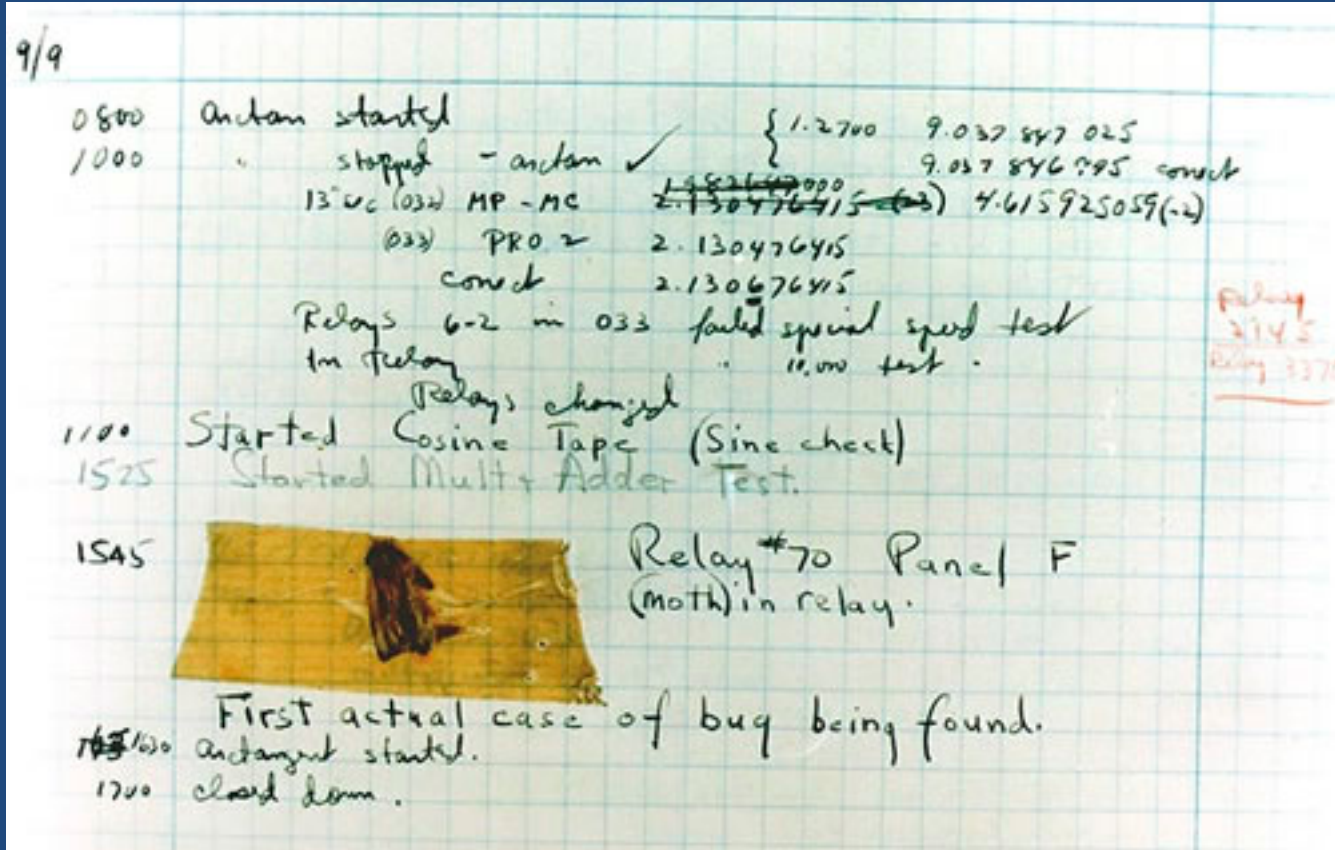 9/9
0800 antan started { 1.2700 9.037 847 025
1000 " stopped - antan ✓ 9.037 846 795 correct
13"uc (032) MP - MC 2.130476415 (-3) 4.615925059(-2)
(033) PRO 2 2.130476415
correct 2.130676415
Relays 6-2 in 033 failed special speed test
In Relay " 10,000 test .
Relay
2145
Relay 3370
Relays changed
1100 Started Cosine Tape (Sine check)
1525 Started Mult+ Adder Test.
1545 Relay #70 Panel F
(moth) in relay.
First actual case of bug being found.
1630 antangent started.
1700 closed down.